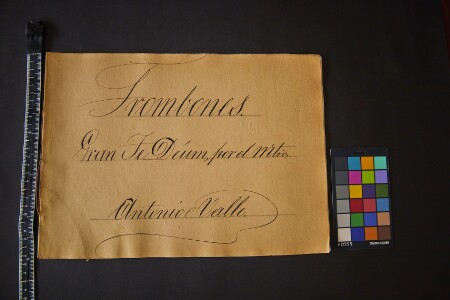 Trombones.
Gran Te Déum, por el Mtro.
Antonio Valle.